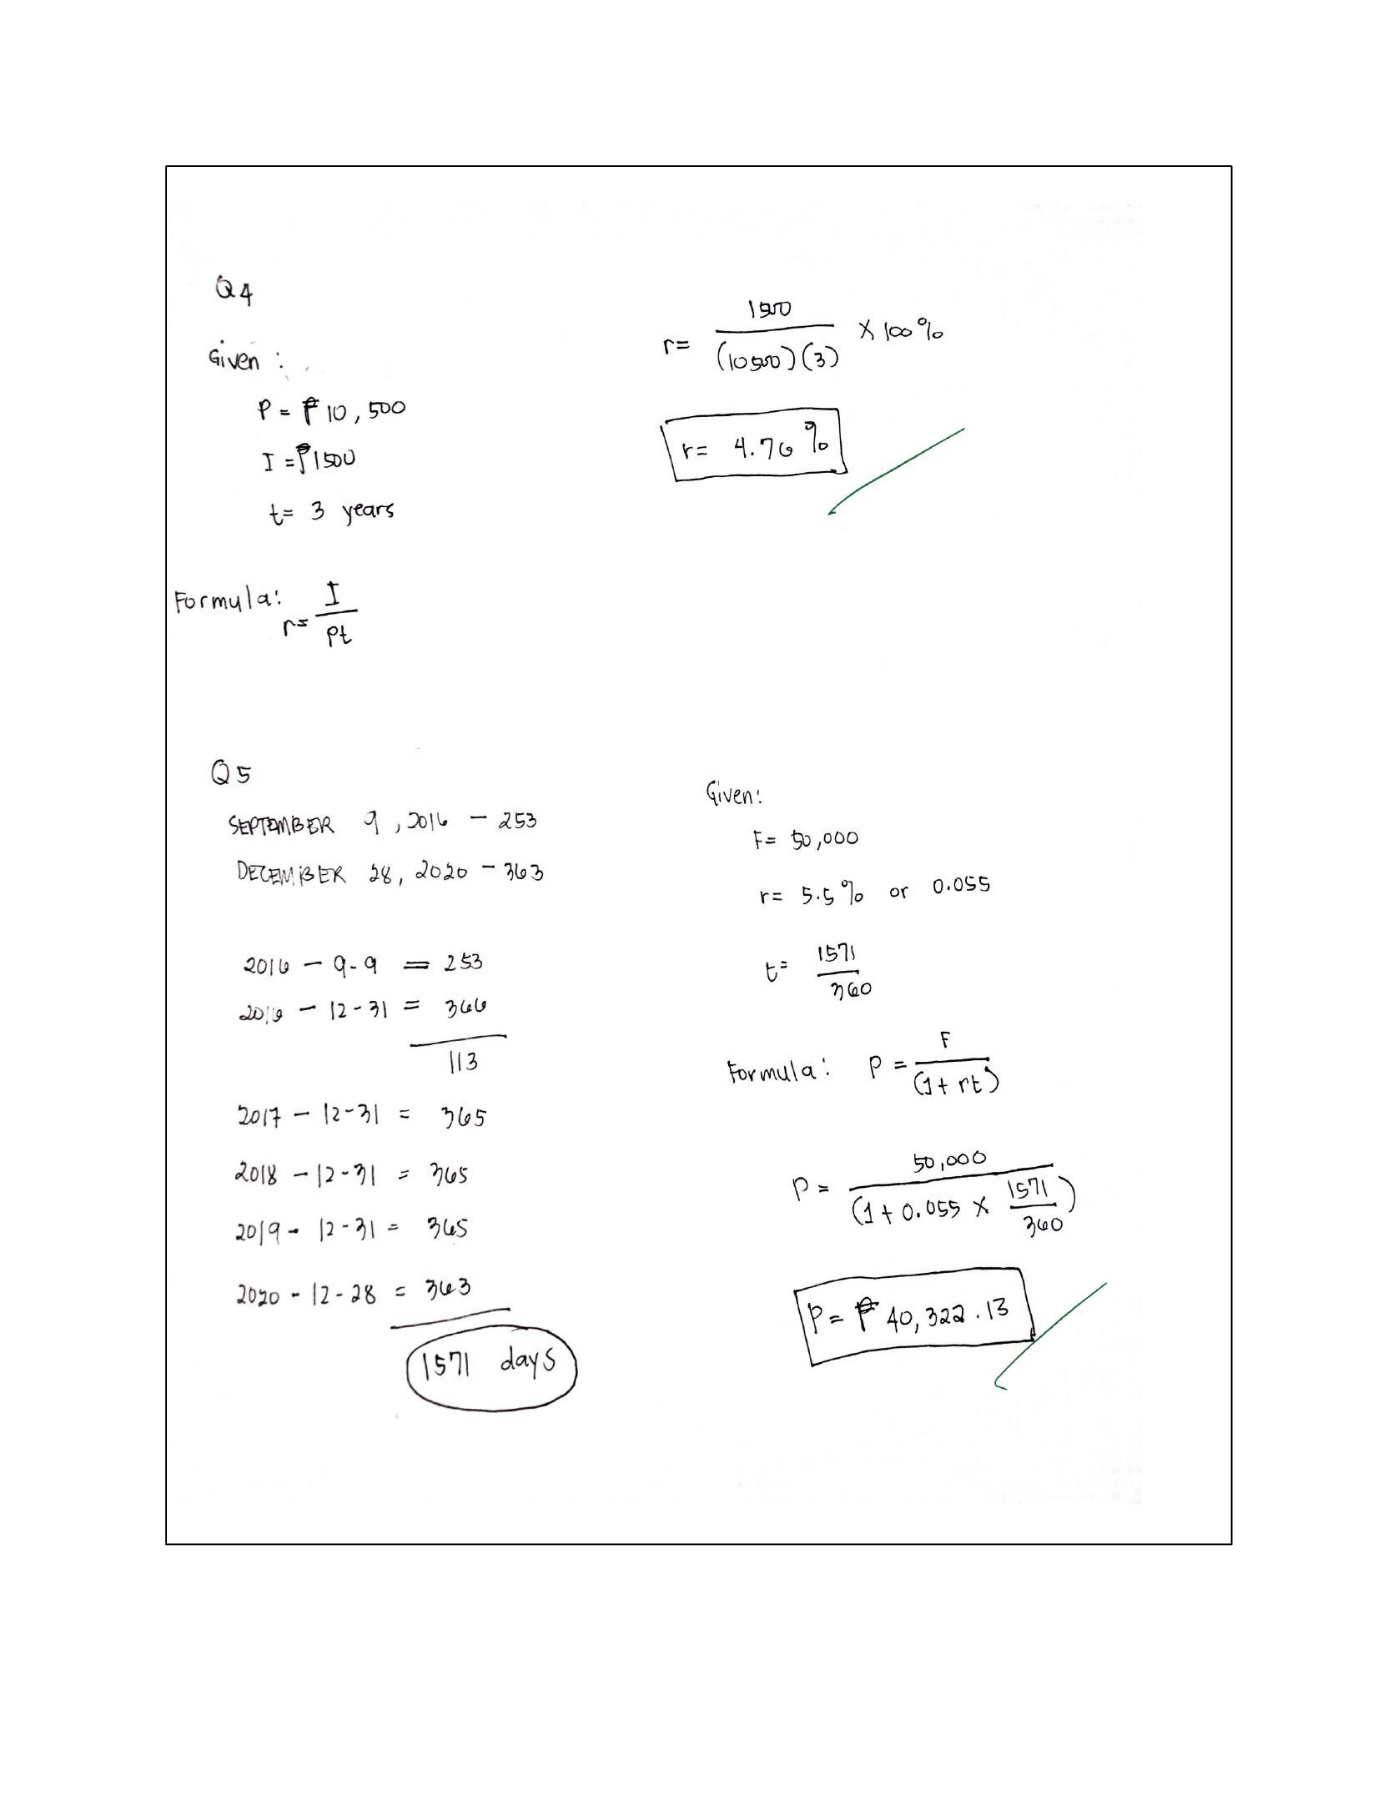 Q4
Given :
P = ₱10,500
I = ₱1500
t= 3 years
Formula: r= I / Pt
r= 1500 / (10500)(3) × 100%
r= 4.76%
Q5
SEPTEMBER 9, 2016 - 253
DECEMBER 28, 2020 - 363
2016 - 9-9 = 253
2016 - 12-31 = 366
113
2017 - 12-31 = 365
2018 - 12-31 = 365
2019 - 12-31 = 365
2020 - 12-28 = 363
1571 days
Given:
F= 50,000
r= 5.5% or 0.055
t= 1571 / 360
Formula: P = F / (1+rt)
P = 50,000 / (1+0.055 × 1571/360)
P= ₱ 40,322.13